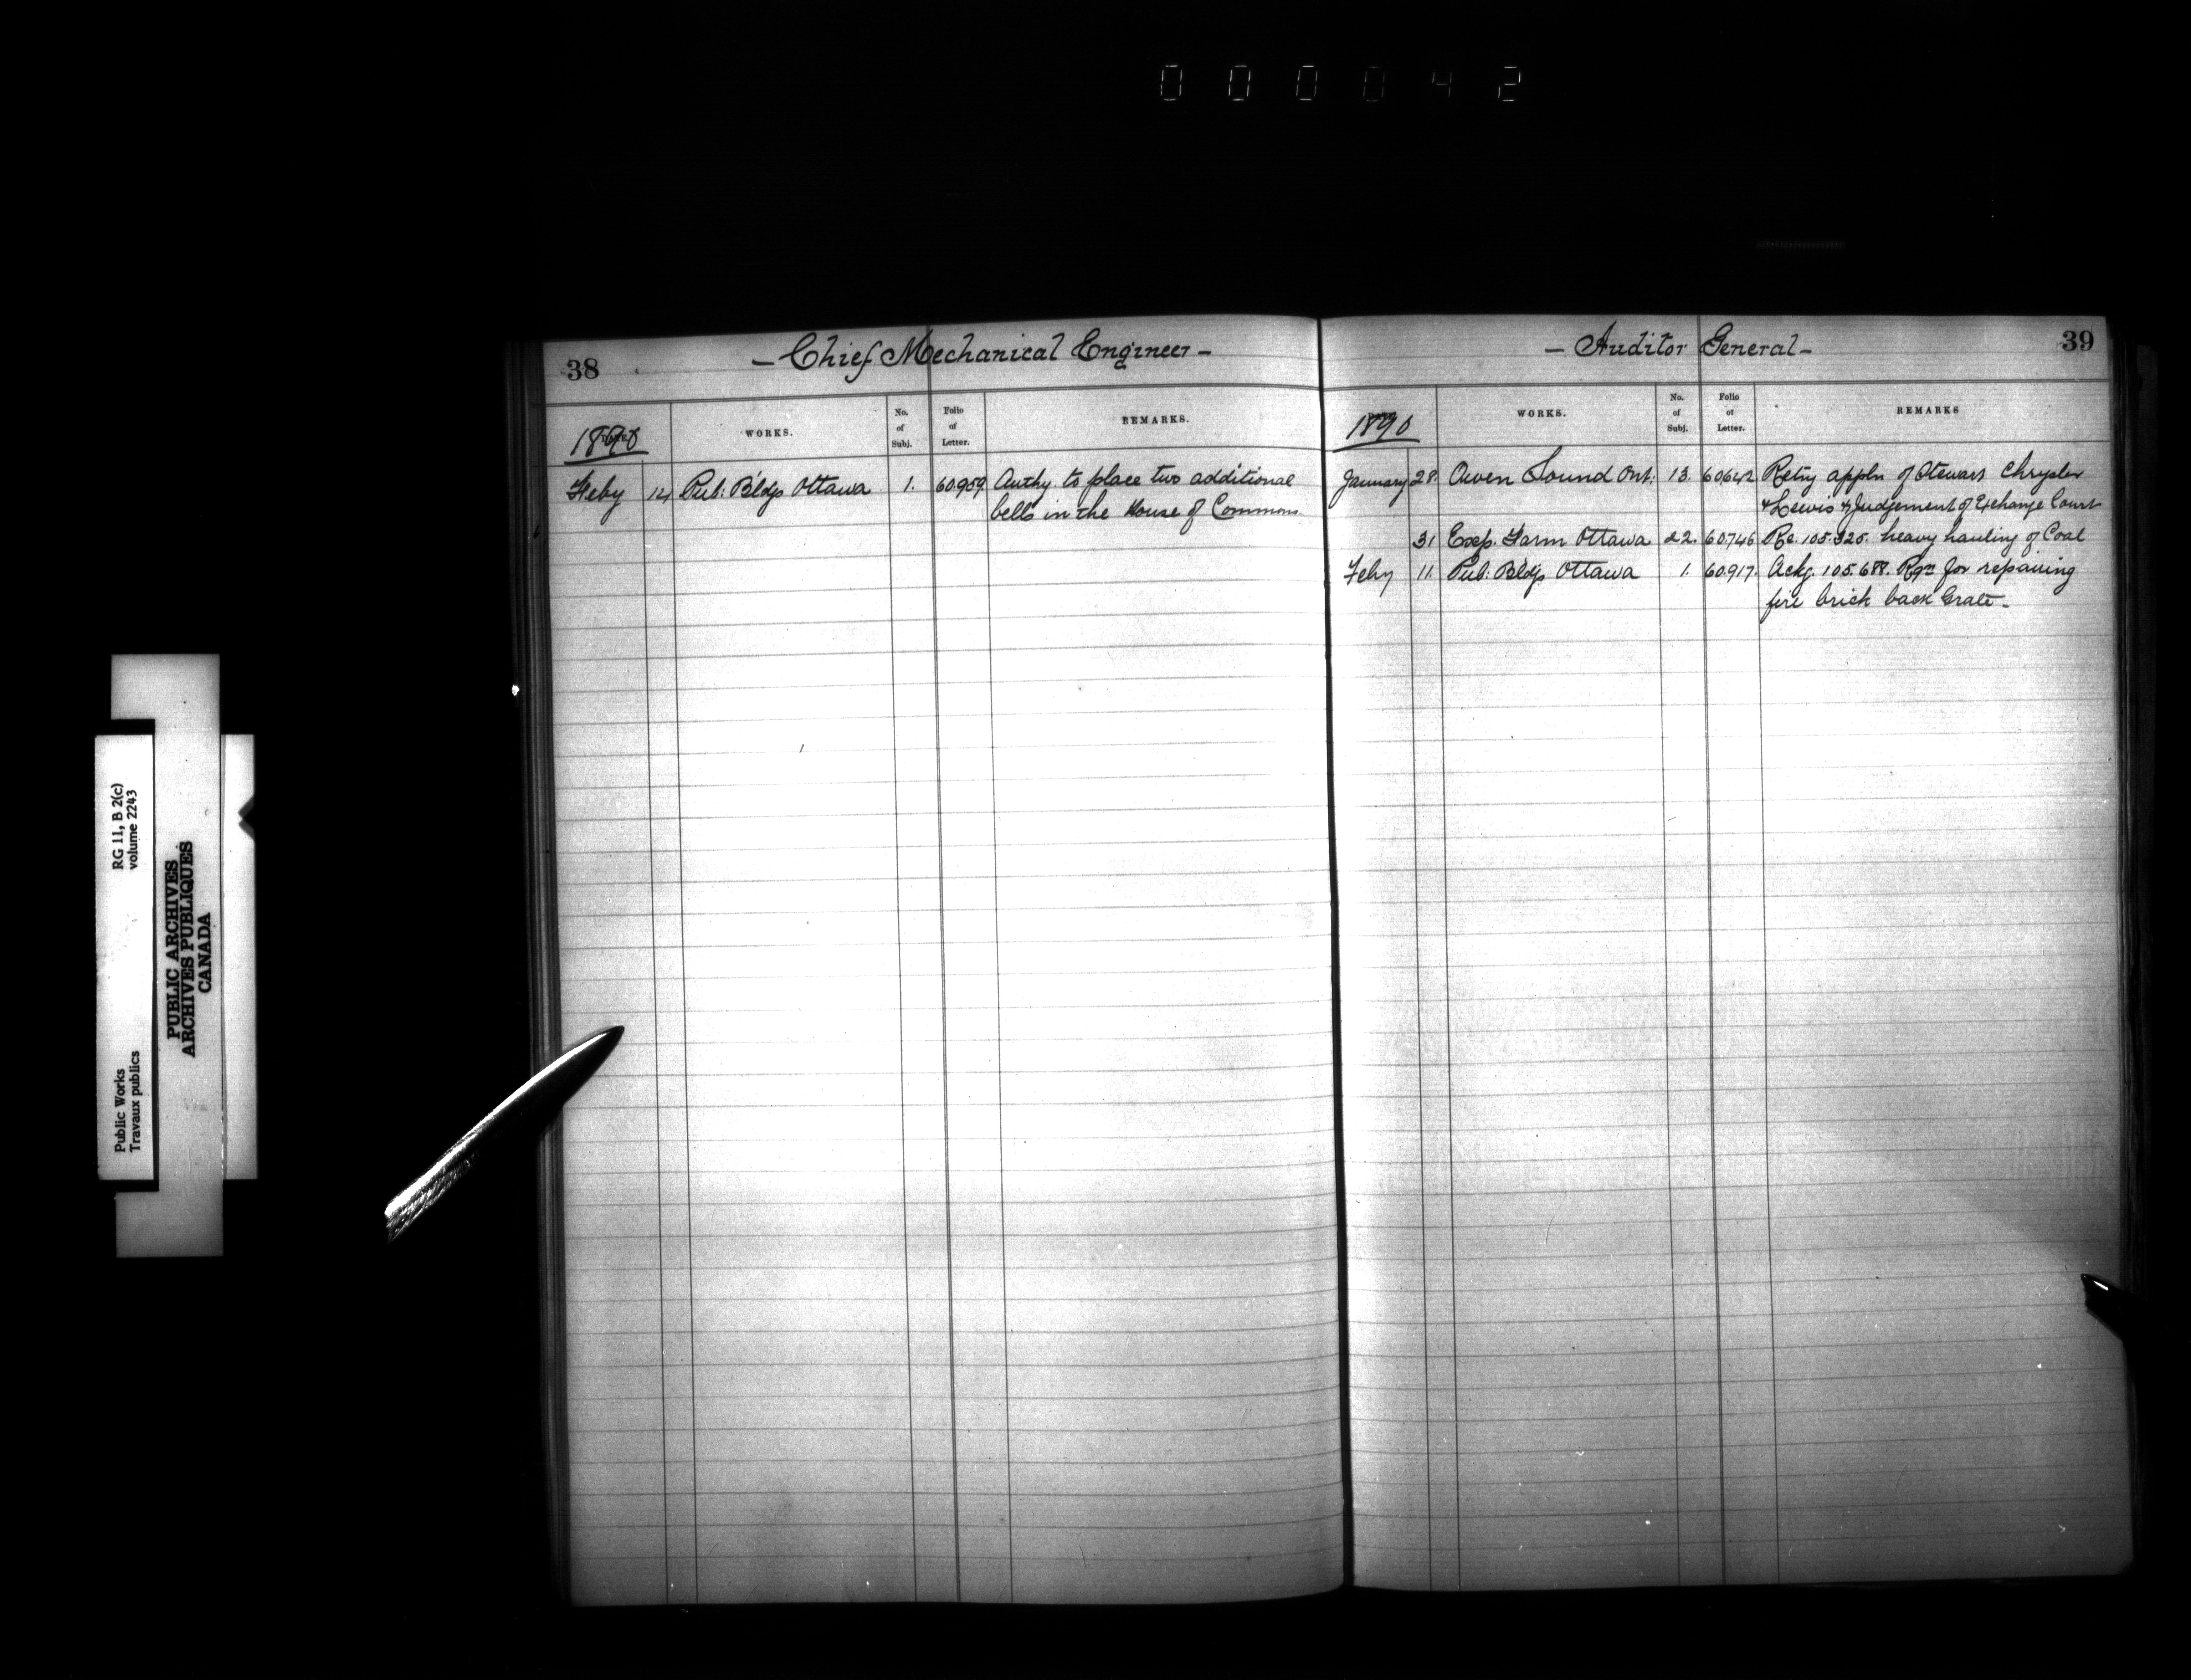 000042
38
- Chief Mechanical Engineer -
1890
WORKS.
No. of Subj.
Folio of Letter.
REMARKS.
Feby 14 Pub: Bldgs Ottawa 1. 60.959. Authy. to place two additional
bells in the House of Commons.
- Auditor General -
39
1890
WORKS.
No. of Subj.
Folio of Letter.
REMARKS
January 28. Owen Sound Ont: 13. 60,642 Retng appln of Stewart Chrysler
& Lewis & Judgement of Exchange Court
31 Exp. Farm Ottawa 22. 60.746 Re. 105.325. heavy hauling of Coal
Feby 11. Pub: Bldgs Ottawa 1. 60.917. Ackg. 105.688. Rqn for repairing
fire brick back Grate -
RG 11, B 2(c)
volume 2243
Public Works
Travaux publics
PUBLIC ARCHIVES
ARCHIVES PUBLIQUES
CANADA